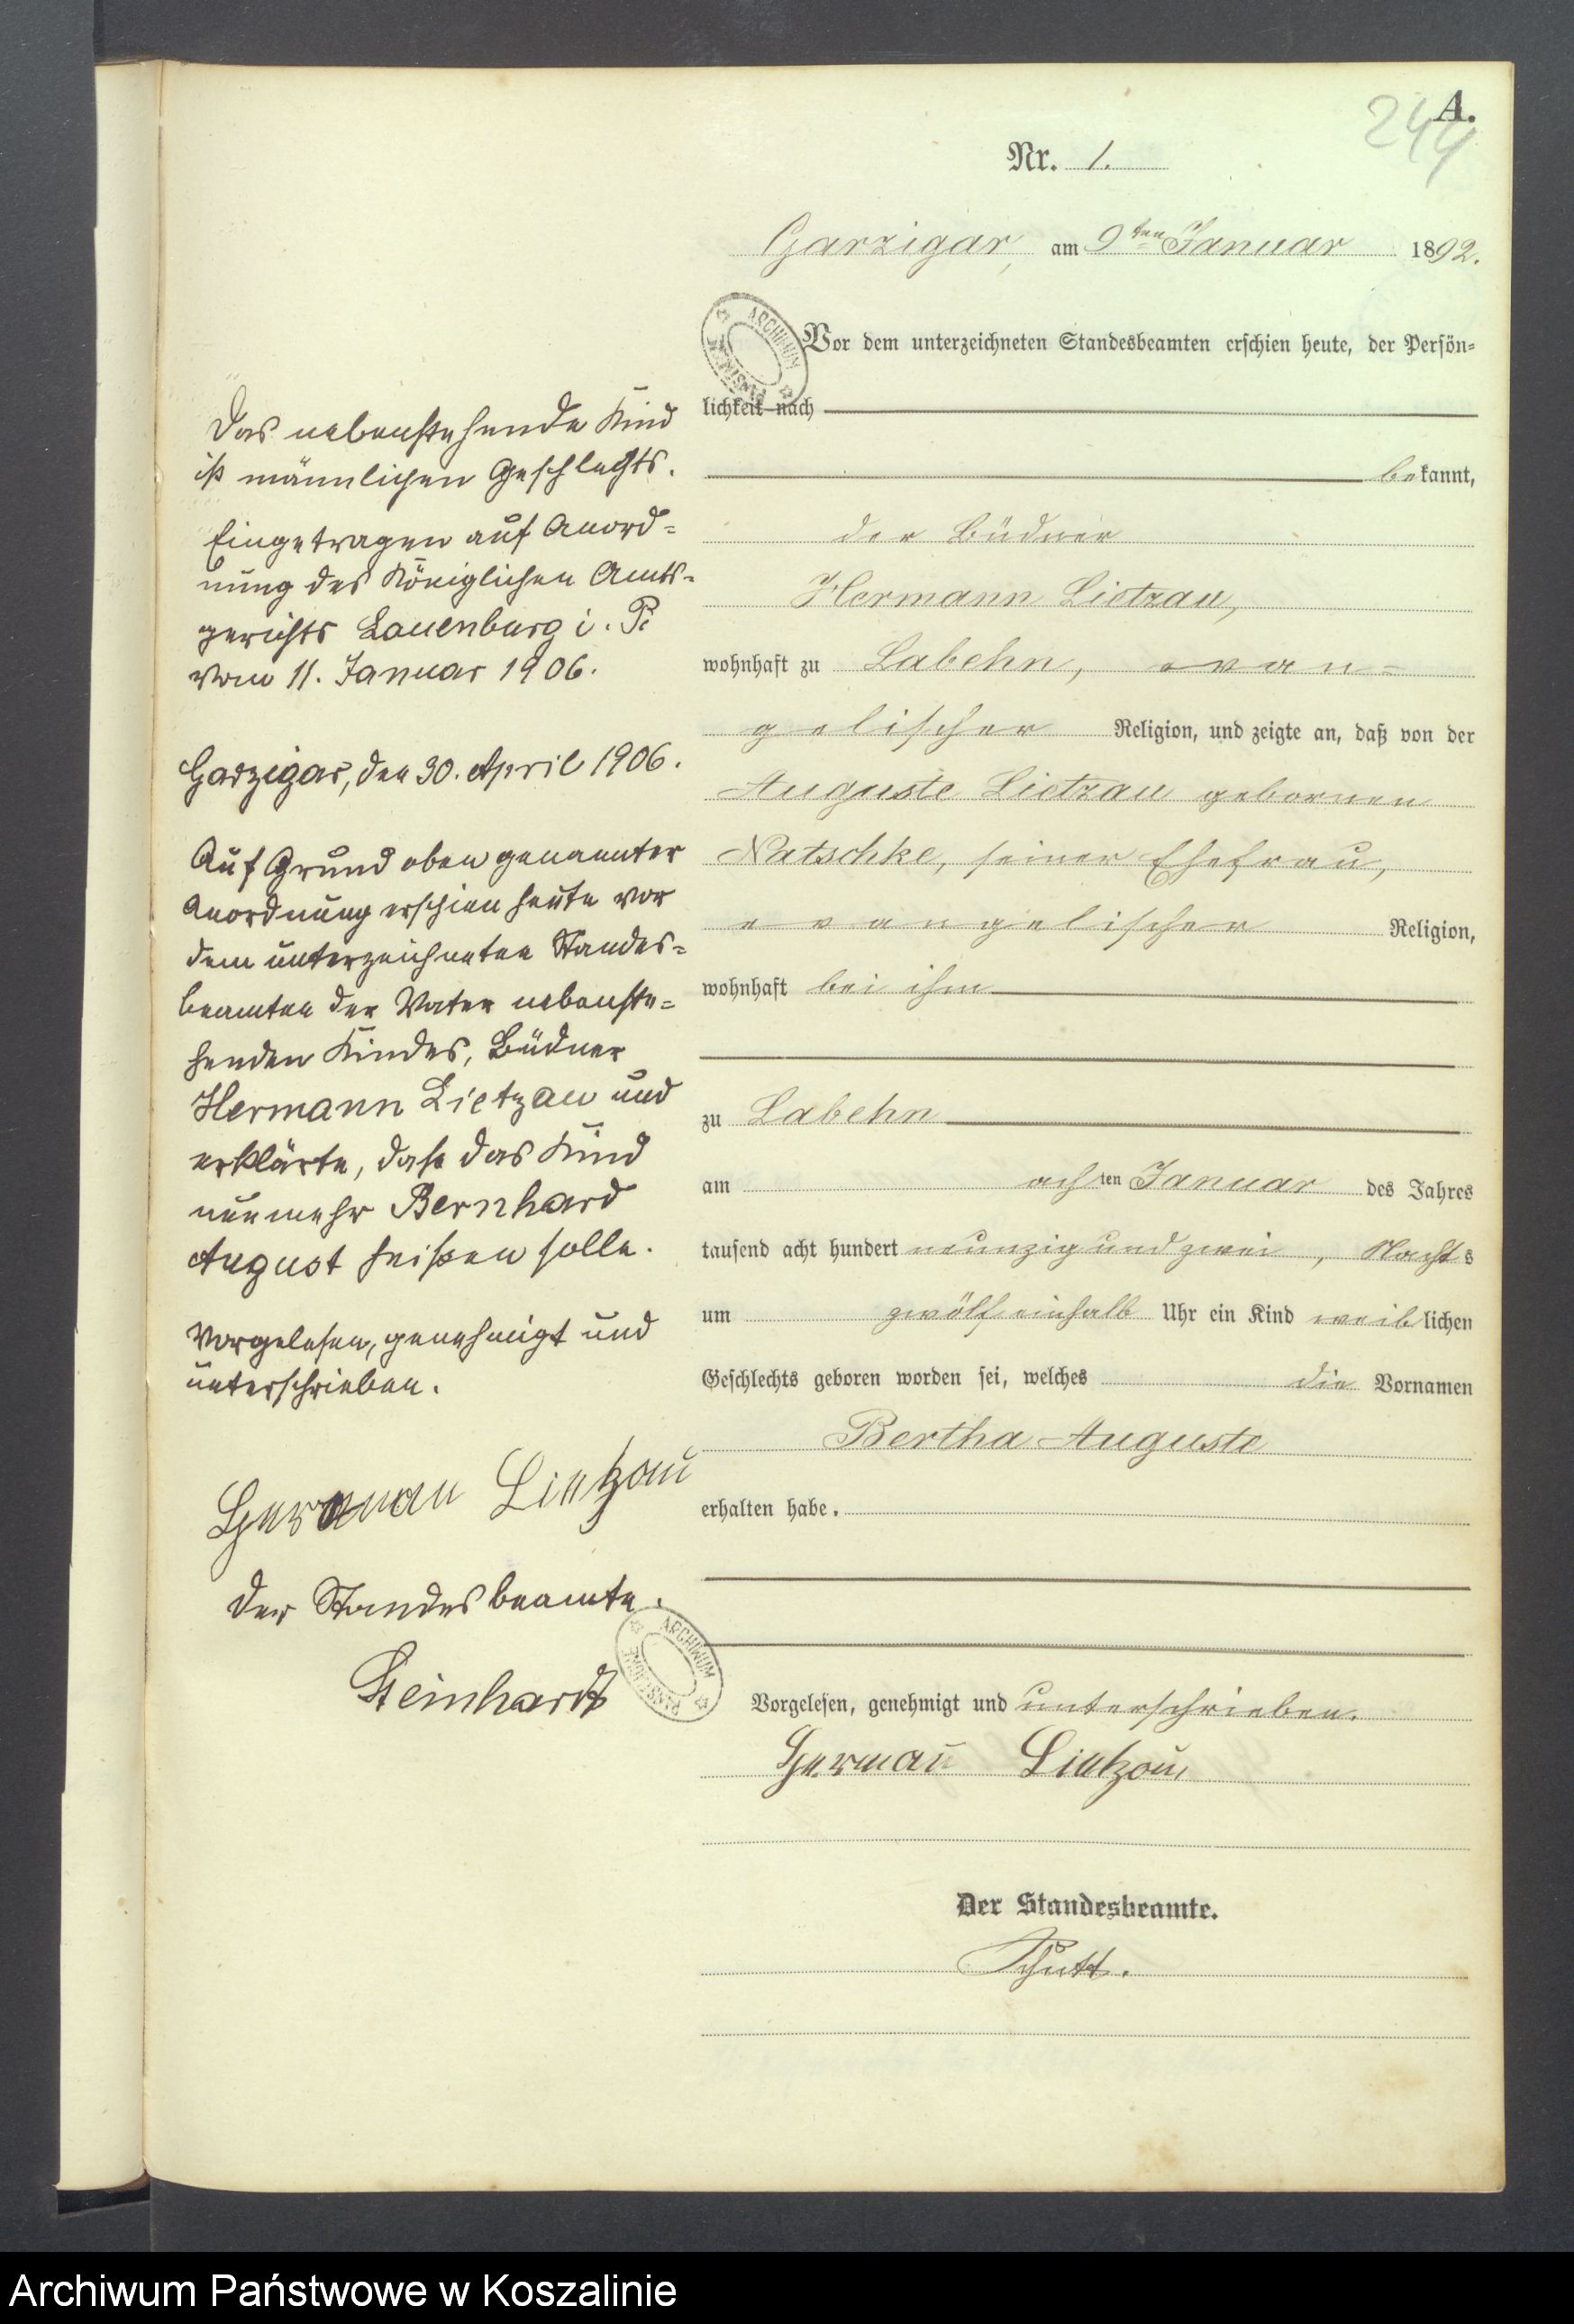 A.
244
Nr. 1.
Garzigar, am 9ten Januar 1892.
Vor dem unterzeichneten Standesbeamten erschien heute, der Persön-
lichkeit nach
bekannt,
der Büdner
Hermann Lietzau,
wohnhaft zu Labehn, evan-
gelischer Religion, und zeigte an, daß von der
Auguste Lietzau gebornen
Natschke, seiner Ehefrau,
evangelischer Religion,
wohnhaft bei ihm
zu Labehn
am achten Januar des Jahres
tausend acht hundert neunzig und zwei, Nachts
um zwölf einhalb Uhr ein Kind weiblichen
Geschlechts geboren worden sei, welches die Vornamen
Bertha Auguste
erhalten habe.
Vorgelesen, genehmigt und unterschrieben.
Herman Lietzau
Der Standesbeamte.
Das nebenstehende Kind
ist männlichen Geschlechts.
Eingetragen auf Anord-
nung des Königlichen Amts-
gerichts Lauenburg i. P.
vom 11. Januar 1906.
Garzigar, den 30. April 1906.
Auf Grund oben genannter
Anordnung erschien heute vor
dem unterzeichneten Standes-
beamten der Vater nebenste-
henden Kindes, Büdner
Hermann Lietzau und
erklärte, dass das Kind
nunmehr Bernhard
August heißen solle.
Vorgelesen, genehmigt und
unterschrieben.
Herman Lietzau
Der Standesbeamte.
Steinhardt
ARCHIWUM PAŃSTWOWE
ARCHIWUM PAŃSTWOWE
Archiwum Państwowe w Koszalinie